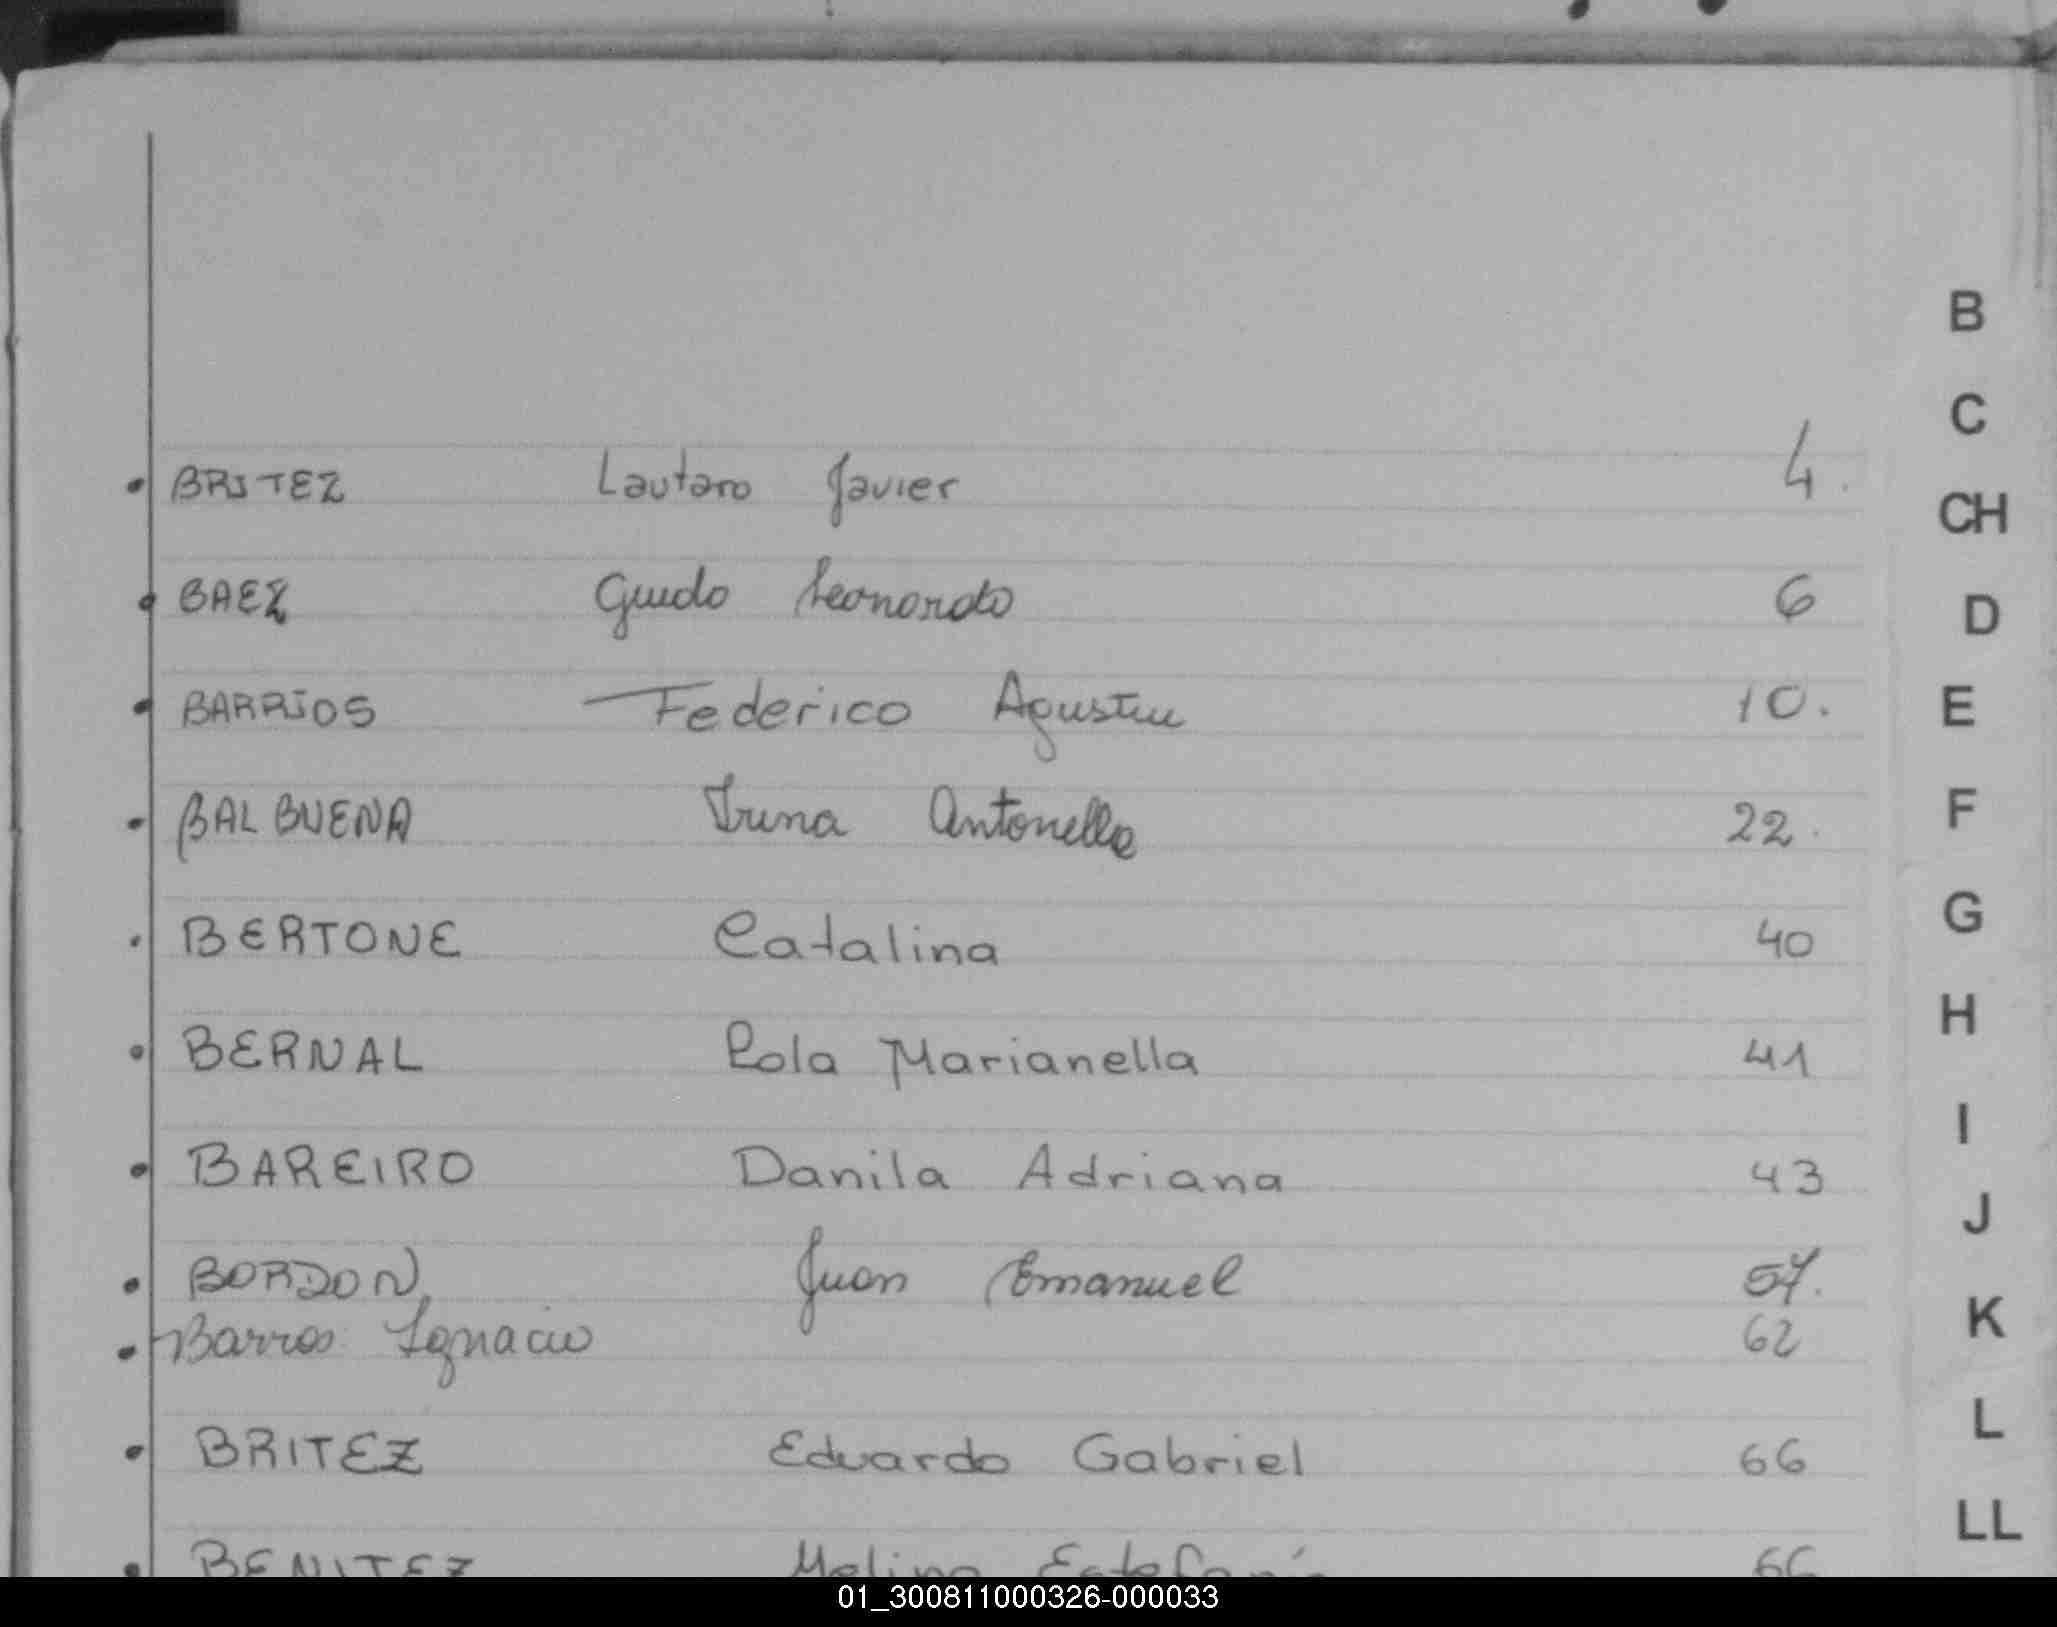 B
C
BRITEZ Lautaro Javier 4.
CH
BAEZ Guido Leonardo 6
D
BARRIOS Federico Agustin 10.
E
BALBUENA Iruna Antonella 22.
F
G
BERTONE Catalina 40
H
BERNAL Lola Marianella 41
I
BAREIRO Danila Adriana 43
J
BORDON, Juan Emanuel 57.
K
Barros Ignacio 62
L
BRITEZ Eduardo Gabriel 66
LL
BENITEZ Melina Estefanía 66
01_300811000326-000033